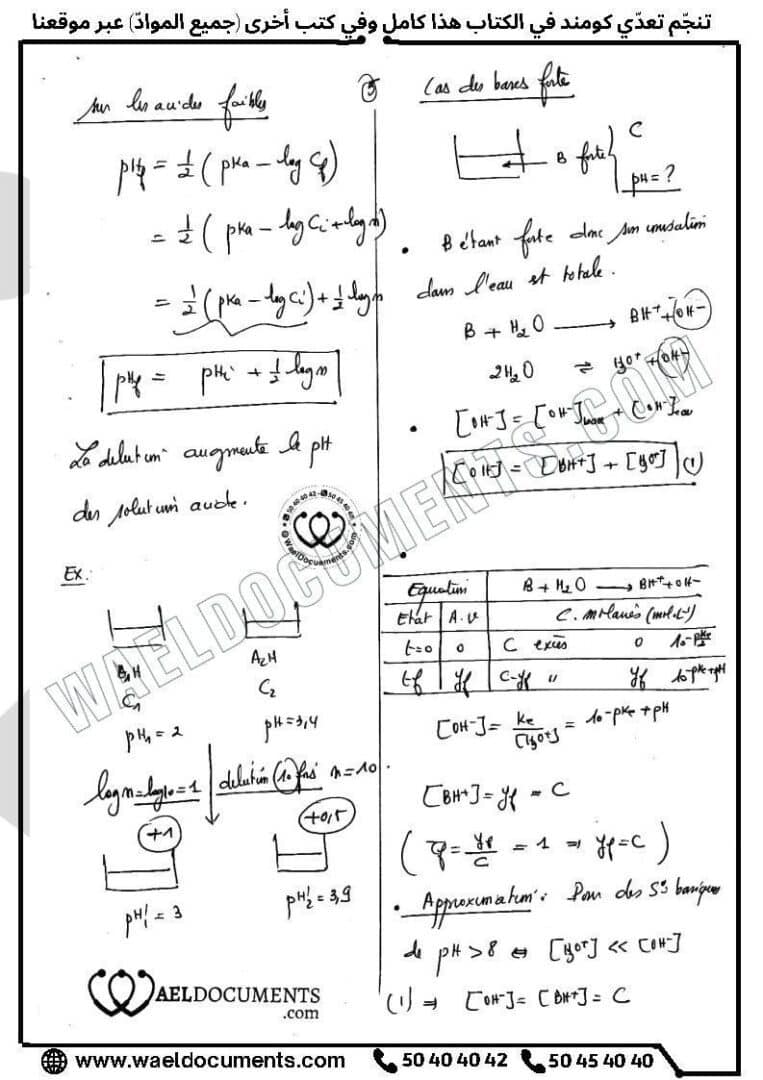 تنجّم تعدّي كومند في الكتاب هذا كامل وفي كتب أخرى (جميع الموادّ) عبر موقعنا
sur les acides faibles
pHf = 1/2 ( pKa - log Cf)
= 1/2 ( pKa - log Ci + log n)
= 1/2 (pKa - log Ci) + 1/2 log n
pHf = pHi + 1/2 log n
La dilution augmente le pH
des solutions acide.
Ex:
A1H
A2H
C1
C2
pH1 = 2
pH = 3,4
log n = log 10 = 1
dilution (10 fois n = 10
+1
+0,5
pH'1 = 3
pH'2 = 3,9
5
Cas des bases forte
B forte
C
pH = ?
B étant forte donc son ionisation
dans l'eau est totale.
B + H2O → BH+ + OH-
2H2O ⇌ H3O+ + OH-
[OH-] = [OH-]base + [OH-]eau
[OH-] = [BH+] + [H3O+] (1)
Equation B + H2O → BH+ + OH-
Etat A.V C. molaires (mol.L-1)
t=0 0 C excès 0 10-pKe/2
tf yf C-yf " yf 10-pKe+pH
[OH-] = Ke/[H3O+] = 10-pKe + pH
[BH+] = yf = C
( τf = yf/C = 1 ⇒ yf = C )
Approximation : Pour des S° basique
de pH > 8 ⇔ [H3O+] << [OH-]
(1) ⇒ [OH-] = [BH+] = C
WAELDOCUMENTS.COM
50 40 40 42 - 50 45 40 40
WaelDocuements.com
WAELDOCUMENTS
.com
www.waeldocuments.com 50 40 40 42 50 45 40 40